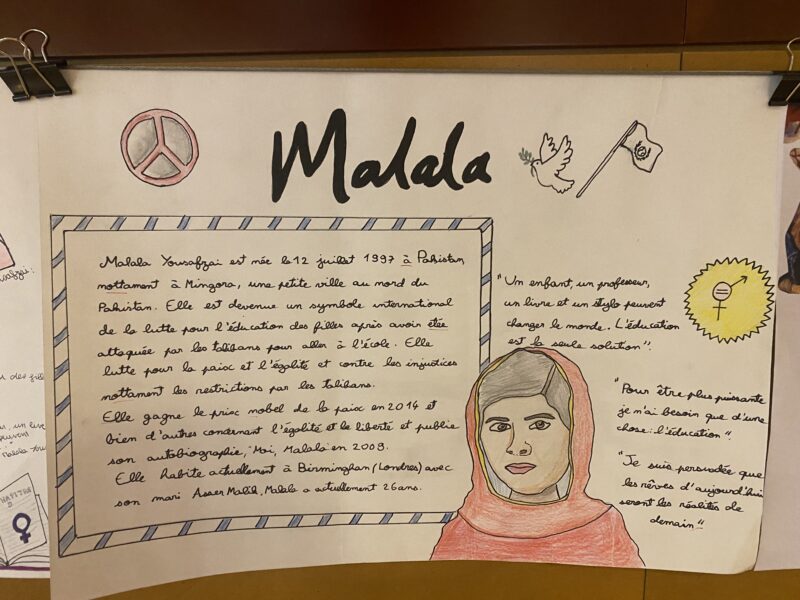 Malala
Malala Yousafzai est née le 12 juillet 1997 à Pakistan
nottament à Mingora, une petite ville au nord du
Pakistan. Elle est devenue un symbole international
de la lutte pour l'éducation des filles après avoir étée
attaquée par les talibans pour aller à l'école. Elle
lutte pour la paix et l'égalité et contre les injustices
nottament les restrictions par les talibans.
Elle gagne le prix nobel de la paix en 2014 et
bien d'autres concernant l'égalité et le liberté et publie
son autobiographie, Moi, Malala en 2009.
Elle habite actuellement à Birminghan (Londres) avec
son mari Asser Malik, Malala a actuellement 26 ans.
"Un enfant, un professeur,
un livre et un stylo peuvent
changer le monde. L'éducation
est la seule solution".
"Pour être plus puissante
je n'ai besoin que d'une
chose: l'éducation".
"Je suis persuadée que
les rêves d'aujourd'hui
seront les réalités de
demain"